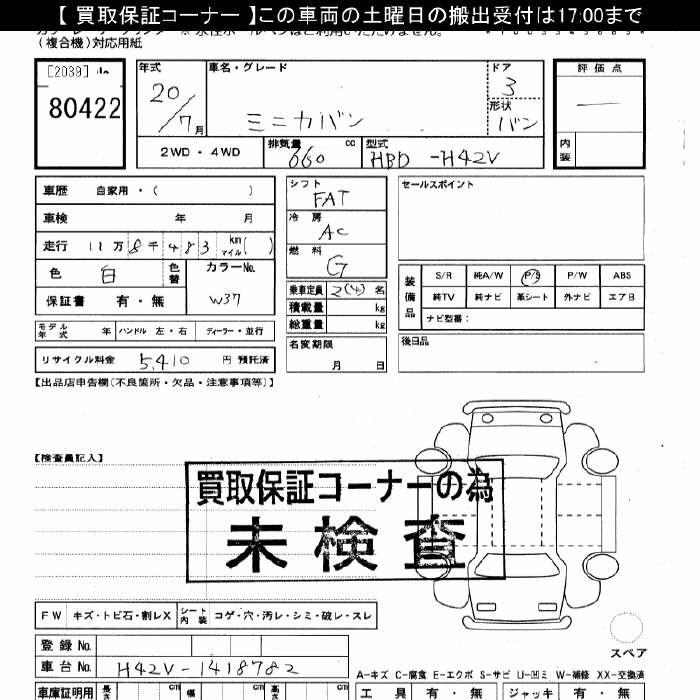 【 買取保証コーナー 】この車両の土曜日の搬出受付は17:00まで
(複合機)対応用紙
[2039]
80422
年式
20/7月
車名・グレード
ミニカバン
ドア
3
形状
バン
評価点
―
内装
2WD ・ 4WD
排気量
660 cc
型式
HBD -H42V
車歴 自家用 ・ ( )
車検 年 月
走行 11万8千483 km マイル( )
色 白 色替
カラーNo.
W37
保証書 有 ・ 無
モデル年式 年 ハンドル 左・右 ディーラー・並行
リサイクル料金 5,410 円 預託済
シフト
FAT
冷房
AC
燃料
G
乗車定員 2(4) 名
積載量 kg
総重量 kg
名変期限
月 日
セールスポイント
装備品
S/R 純A/W P/S P/W ABS
純TV 純ナビ 革シート 外ナビ エアB
ナビ型番:
後日品
【出品店申告欄(不良箇所・欠品・注意事項等)】
【検査員記入】
買取保証コーナーの為
未検査
FW キズ・トビ石・割レX シート内装 コゲ・穴・汚レ・シミ・破レ・スレ
スペア
登録No.
車台No. H42V-1418782
A-キズ C-腐食 E-エクボ S-サビ U-凹ミ W-補修 XX-交換済
車庫証明用 長さ cm 幅 cm 高さ cm
工具 有・無 ジャッキ 有・無